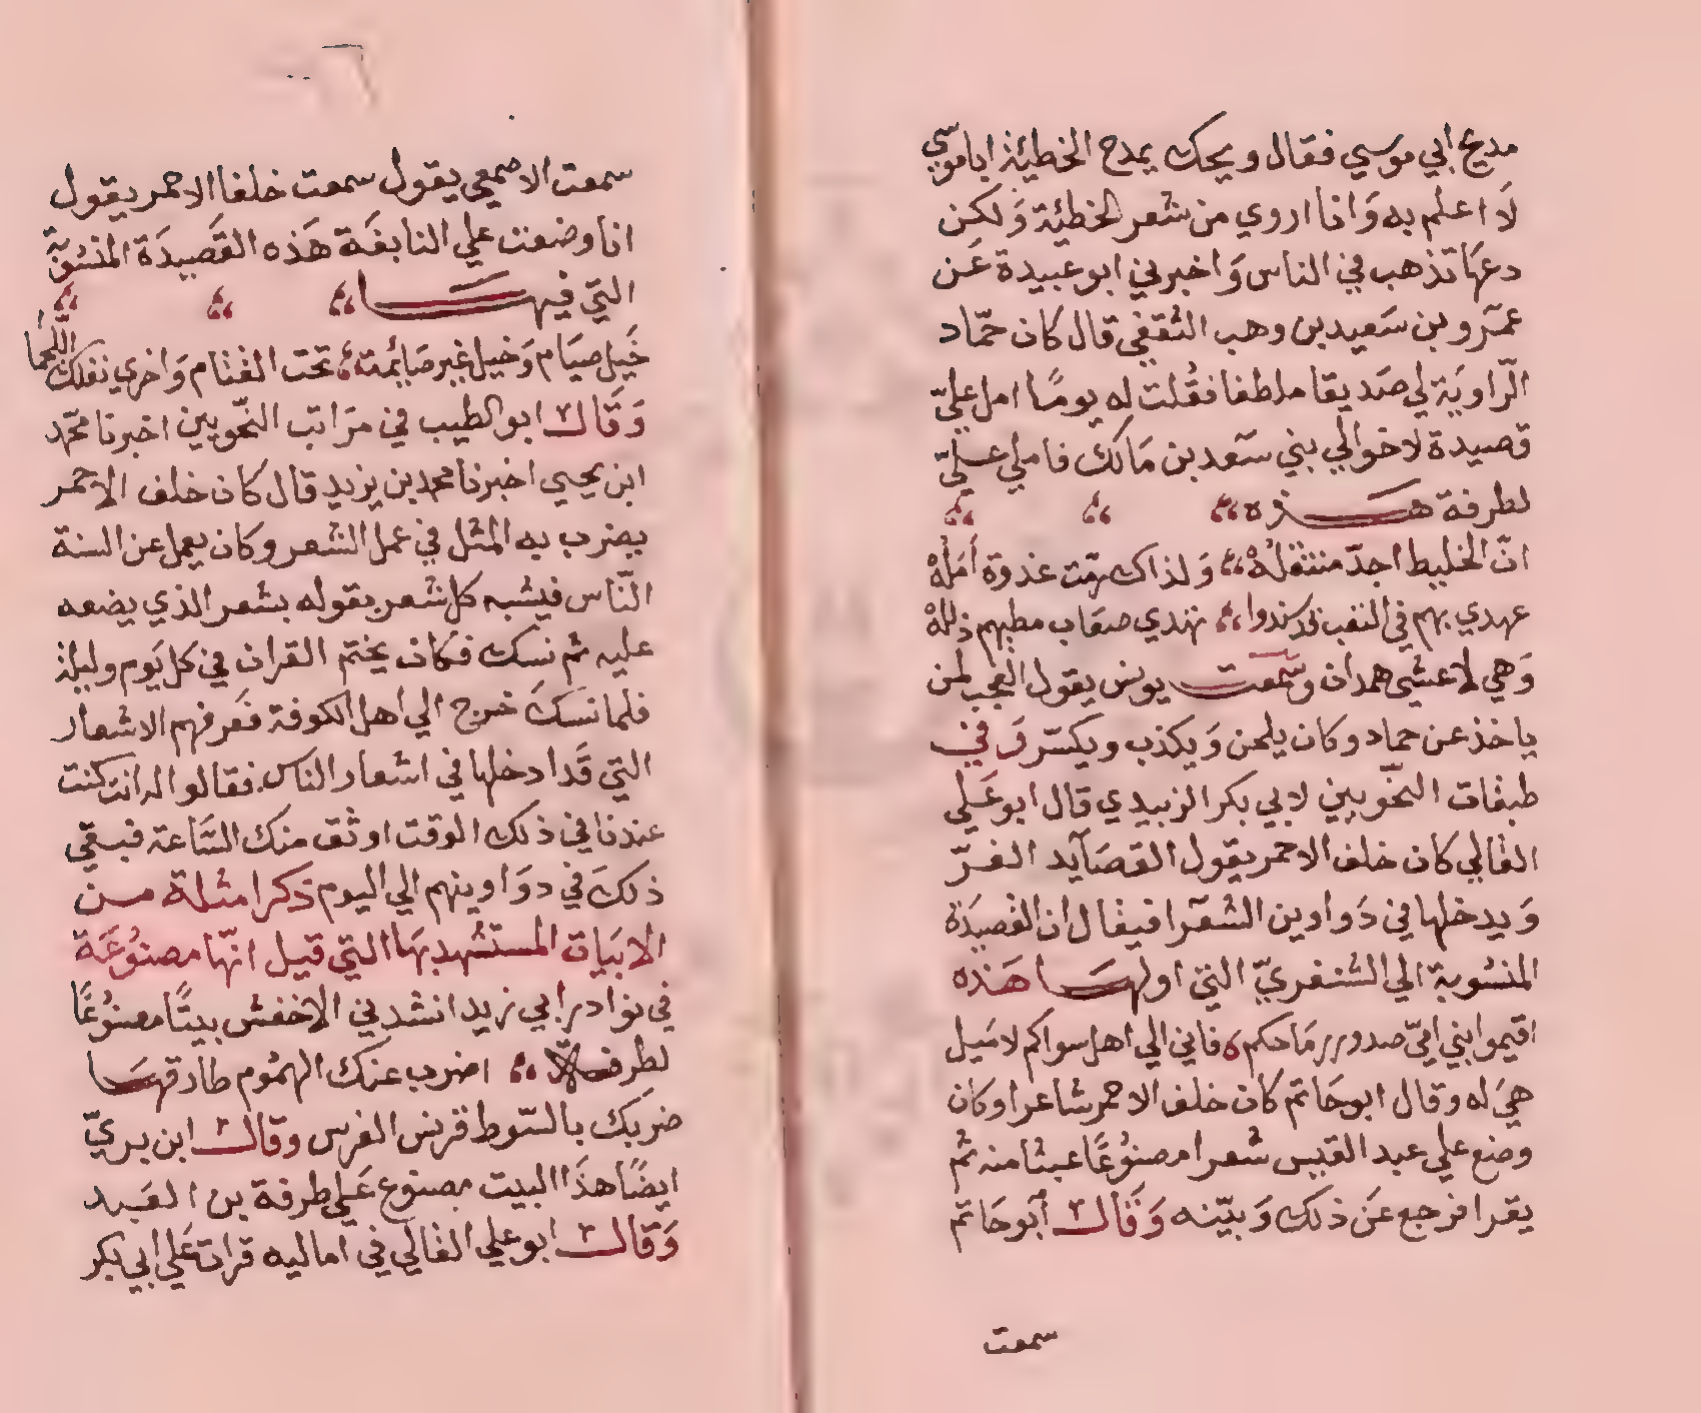 مديح ابي موسي فقال ويحك يمدح الخطيئة ابا موسي
لا اعلم به وانا اروي من شعر الخطيئة ولكن
دعها تذهب في الناس واخبرني ابو عبيدة عن
عمرو بن سعيد بن وهب الثقفي قال كان حمّاد
الرّاوية لي صديقا ملطفا فقلت له يومًا امل عليّ
قصيدة لاخوالي بني سعد بن مالك فاملي عليّ
لطرفة هذه
انّ الخليط اجدّ منتقله ولذاك زمّت غدوة ابله
عهدي بهم في النقب قد سندوا تهدي صعاب مطيهم ذلله
وهي لاعشي همدان وسمعت يونس يقول العجب لمن
ياخذ عن حماد وكان يلحن ويكذب ويكسّر وفي
طبقات النحّويين لابي بكر الزبيدي قال ابو علي
القالي كان خلف الاحمر يقول القصآيد الغرّ
ويدخلها في دواوين الشعرآ فيقال ان القصيدة
المنسوبة الي الشنفريّ التي اولها هذه
اقيموا بني امّي صدور رماحكم فاني الي اهل سواكم لاميل
هي له وقال ابو حاتم كان خلف الاحمر شاعرا وكان
وضع علي عبد القيس شعرا مصنوعًا عبثا منه ثم
يقرا فرجع عن ذلك وبيّنه وقال أبو حاتم
سمعت
سمعت الاصمعي يقول سمعت خلفا الاحمر يقول
انا وضعت علي النابغة هذه القصيدة المنسوبة
التي فيها
خيل صيام وخيل غير صايمة تحت القتام واخري تعلك اللجما
وقال ابو الطيب في مراتب النحّويين اخبرنا محمّد
ابن يحيي اخبرنا محمد بن يزيد قال كان خلف الاحمر
يضرب به المثل في عمل الشعر وكان يعمل عن السنة
النّاس فيشبه كل شعر يقوله بشعر الذي يضعه
عليه ثم نسك فكان يختم القران في كل يوم وليلة
فلما نسك خرج الي اهل الكوفة فعرفهم الاشعار
التي قد ادخلها في اشعار الناس فقالوا له انت كنت
عندنا في ذلك الوقت اوثق منك السّاعة فبقي
ذلك في دواوينهم الي اليوم ذكر امثلة من
الابيات المستشهد بها التي قيل انّها مصنوعة
في نوادر ابي زيد انشدني الاخفش بيتًا مصنوعًا
لطرفة اضرب عنك الهموم طارقها
ضربك بالسّوط قونس الفرس وقال ابن بريّ
ايضًا هذا البيت مصنوع علي طرفة بن العبد
وقال ابو علي القالي في اماليه قرات علي ابي بكر